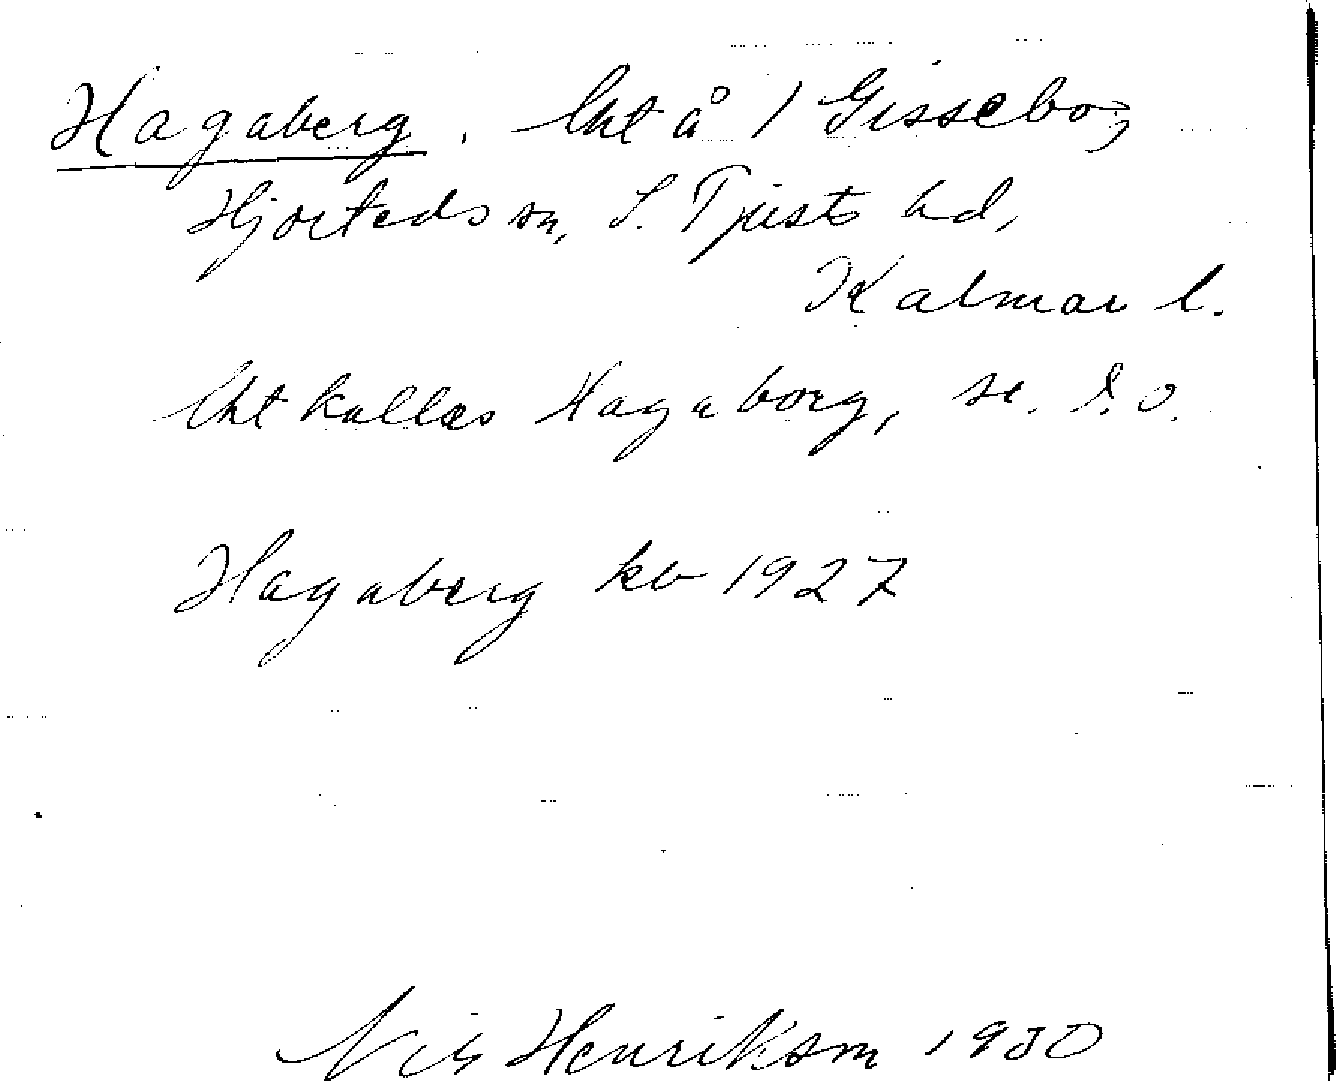 Hagaberg. Lht å 1 Gissebo,
Hjorteds sn, S. Tjusts hd,
Kalmar l.
Lht kallas Hagaborg, se. d. o.
Hagaberg kb 1927
Nils Henriksson 1930